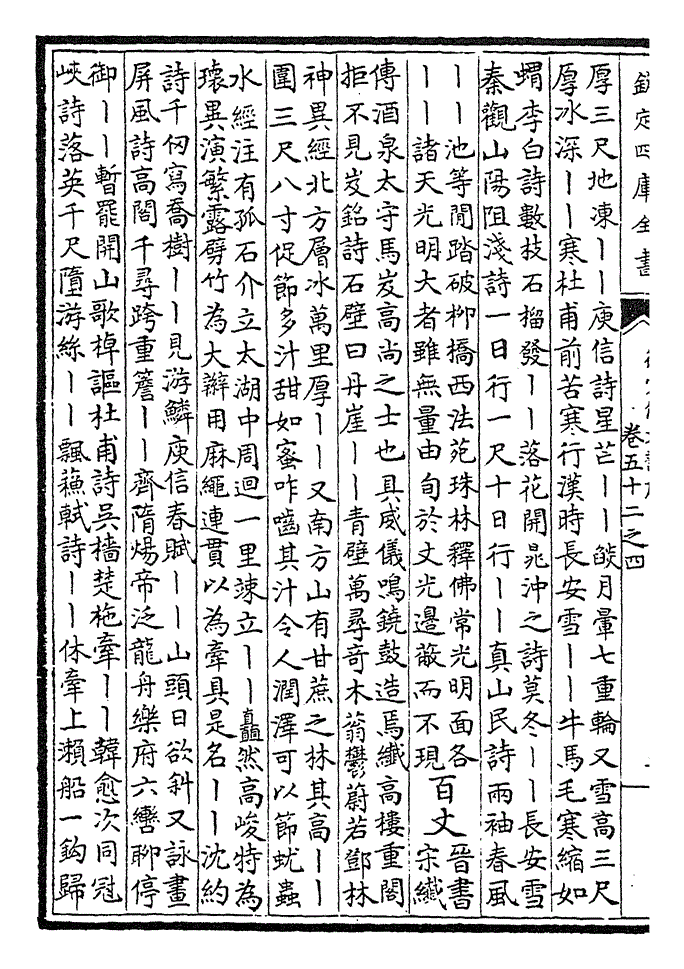 欽定四庫全書
卷五十二之四
厚三尺地凍丨丨庾信詩星芒丨丨燄月暈七重輪又雪高三尺
厚冰深丨丨寒杜甫前苦寒行漢時長安雪丨丨牛馬毛寒縮如
蝟李白詩數技石榴發丨丨落花開晁沖之詩莫冬丨丨長安雪
秦觀山陽阻淺詩一日行一尺十日行丨丨真山民詩兩袖春風
丨丨池等閒踏破栁橋西法苑珠林釋佛常光明面各
丨丨諸天光明大者雖無量由旬於丈光邊蔽而不現
百丈
晉書
宋纎
傳酒泉太守馬岌高尚之士也具威儀鳴鐃鼓造焉纎高樓重閣
拒不見岌銘詩石壁曰丹崖丨丨青壁萬尋竒木蓊鬱蔚若鄧林
神異經北方層冰萬里厚丨丨又南方山有甘蔗之林其高丨丨
圍三尺八寸促節多汁甜如蜜咋嚙其汁令人潤澤可以節蚘蟲
水經注有孤石介立太湖中周迴一里竦立丨丨矗然高峻特為
瓌異演繁露劈竹為大辦用麻繩連貫以為牽具是名丨丨沈約
詩千仞寫喬樹丨丨見游鱗庾信春賦丨丨山頭日欲斜又詠畫
屏風詩高閣千尋跨重簷丨丨齊隋煬帝泛龍舟樂府六轡聊停
御丨丨暫罷開山歌棹謳杜甫詩吳檣楚柂牽丨丨韓愈次同冠
峽詩落英千尺墮游絲丨丨飄蘓軾詩丨丨休牽上瀨船一鈎歸